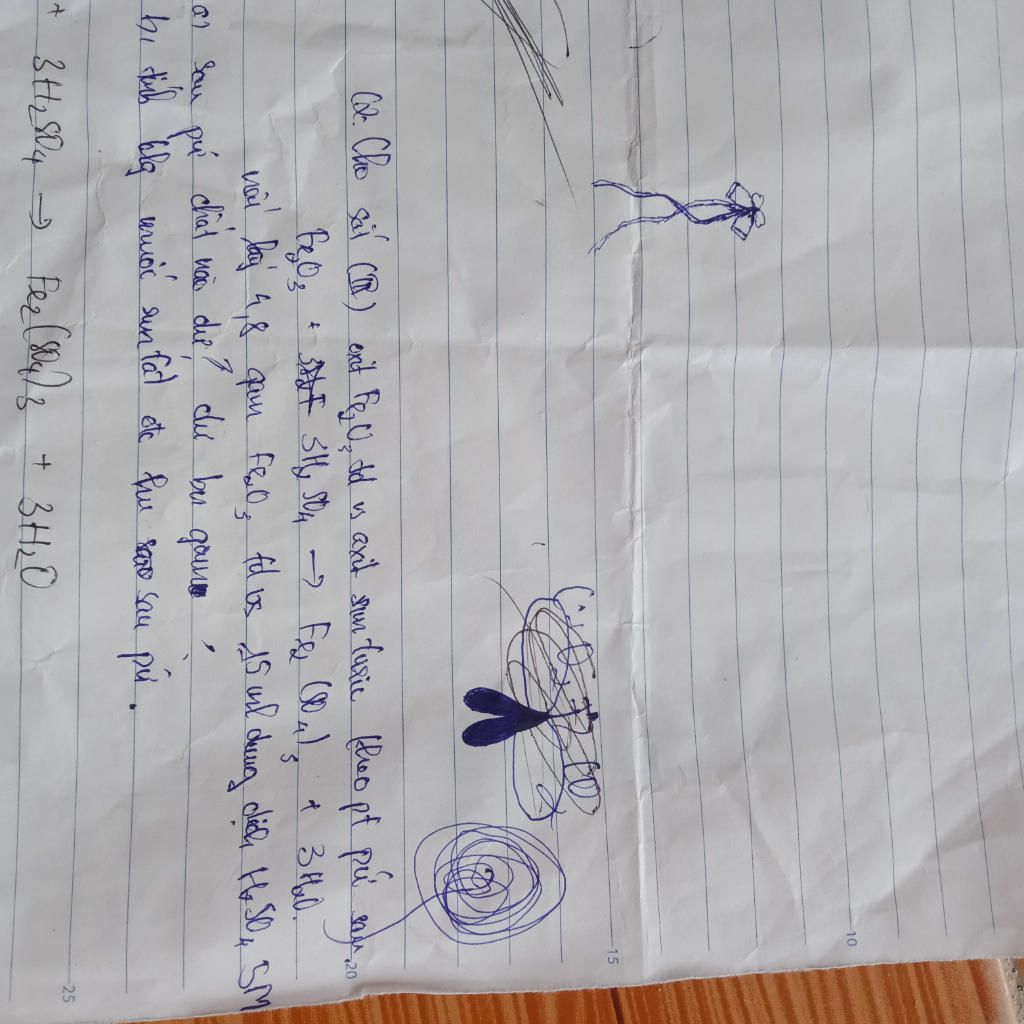 C2: Cho sắt (III) oxit Fe2O3 td vs axit sunfuric theo pt pứ sau
Fe2O3 + 3H2SO4 → Fe2(SO4)3 + 3H2O.
nếu lấy 4,8 gam Fe2O3 td vs 25 ml dung dịch H2SO4 5M
a, sau pứ chất nào dư? dư bn gam
b, tính klg muối sunfat đc thu sau pứ.
+ 3H2SO4 → Fe2(SO4)3 + 3H2O
10
15
20
25